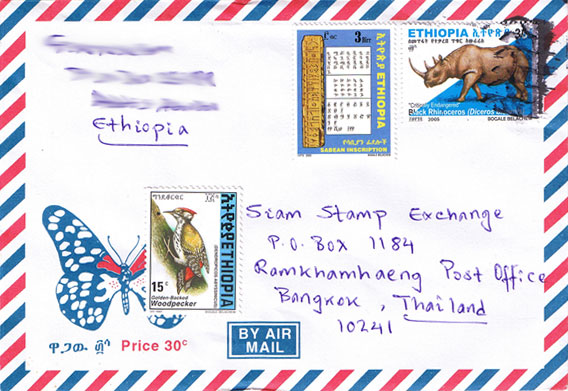 Ethiopia
3 Birr
ኢትዮጵያ ETHIOPIA
SABEAN INSCRIPTION
ETHIOPIA ኢትዮጵያ
"Critically Endangered"
Black Rhinoceros (Diceros
2005 BOGALE BELACHEW
ኢትዮጵያ ETHIOPIA
15c
Golden-Backed
Woodpecker
Siam Stamp Exchange
P.O. Box 1184
Ramkhamhaeng Post Office
Bangkok, Thailand
10241
BY AIR
MAIL
ዋጋው ፴ሳ Price 30c